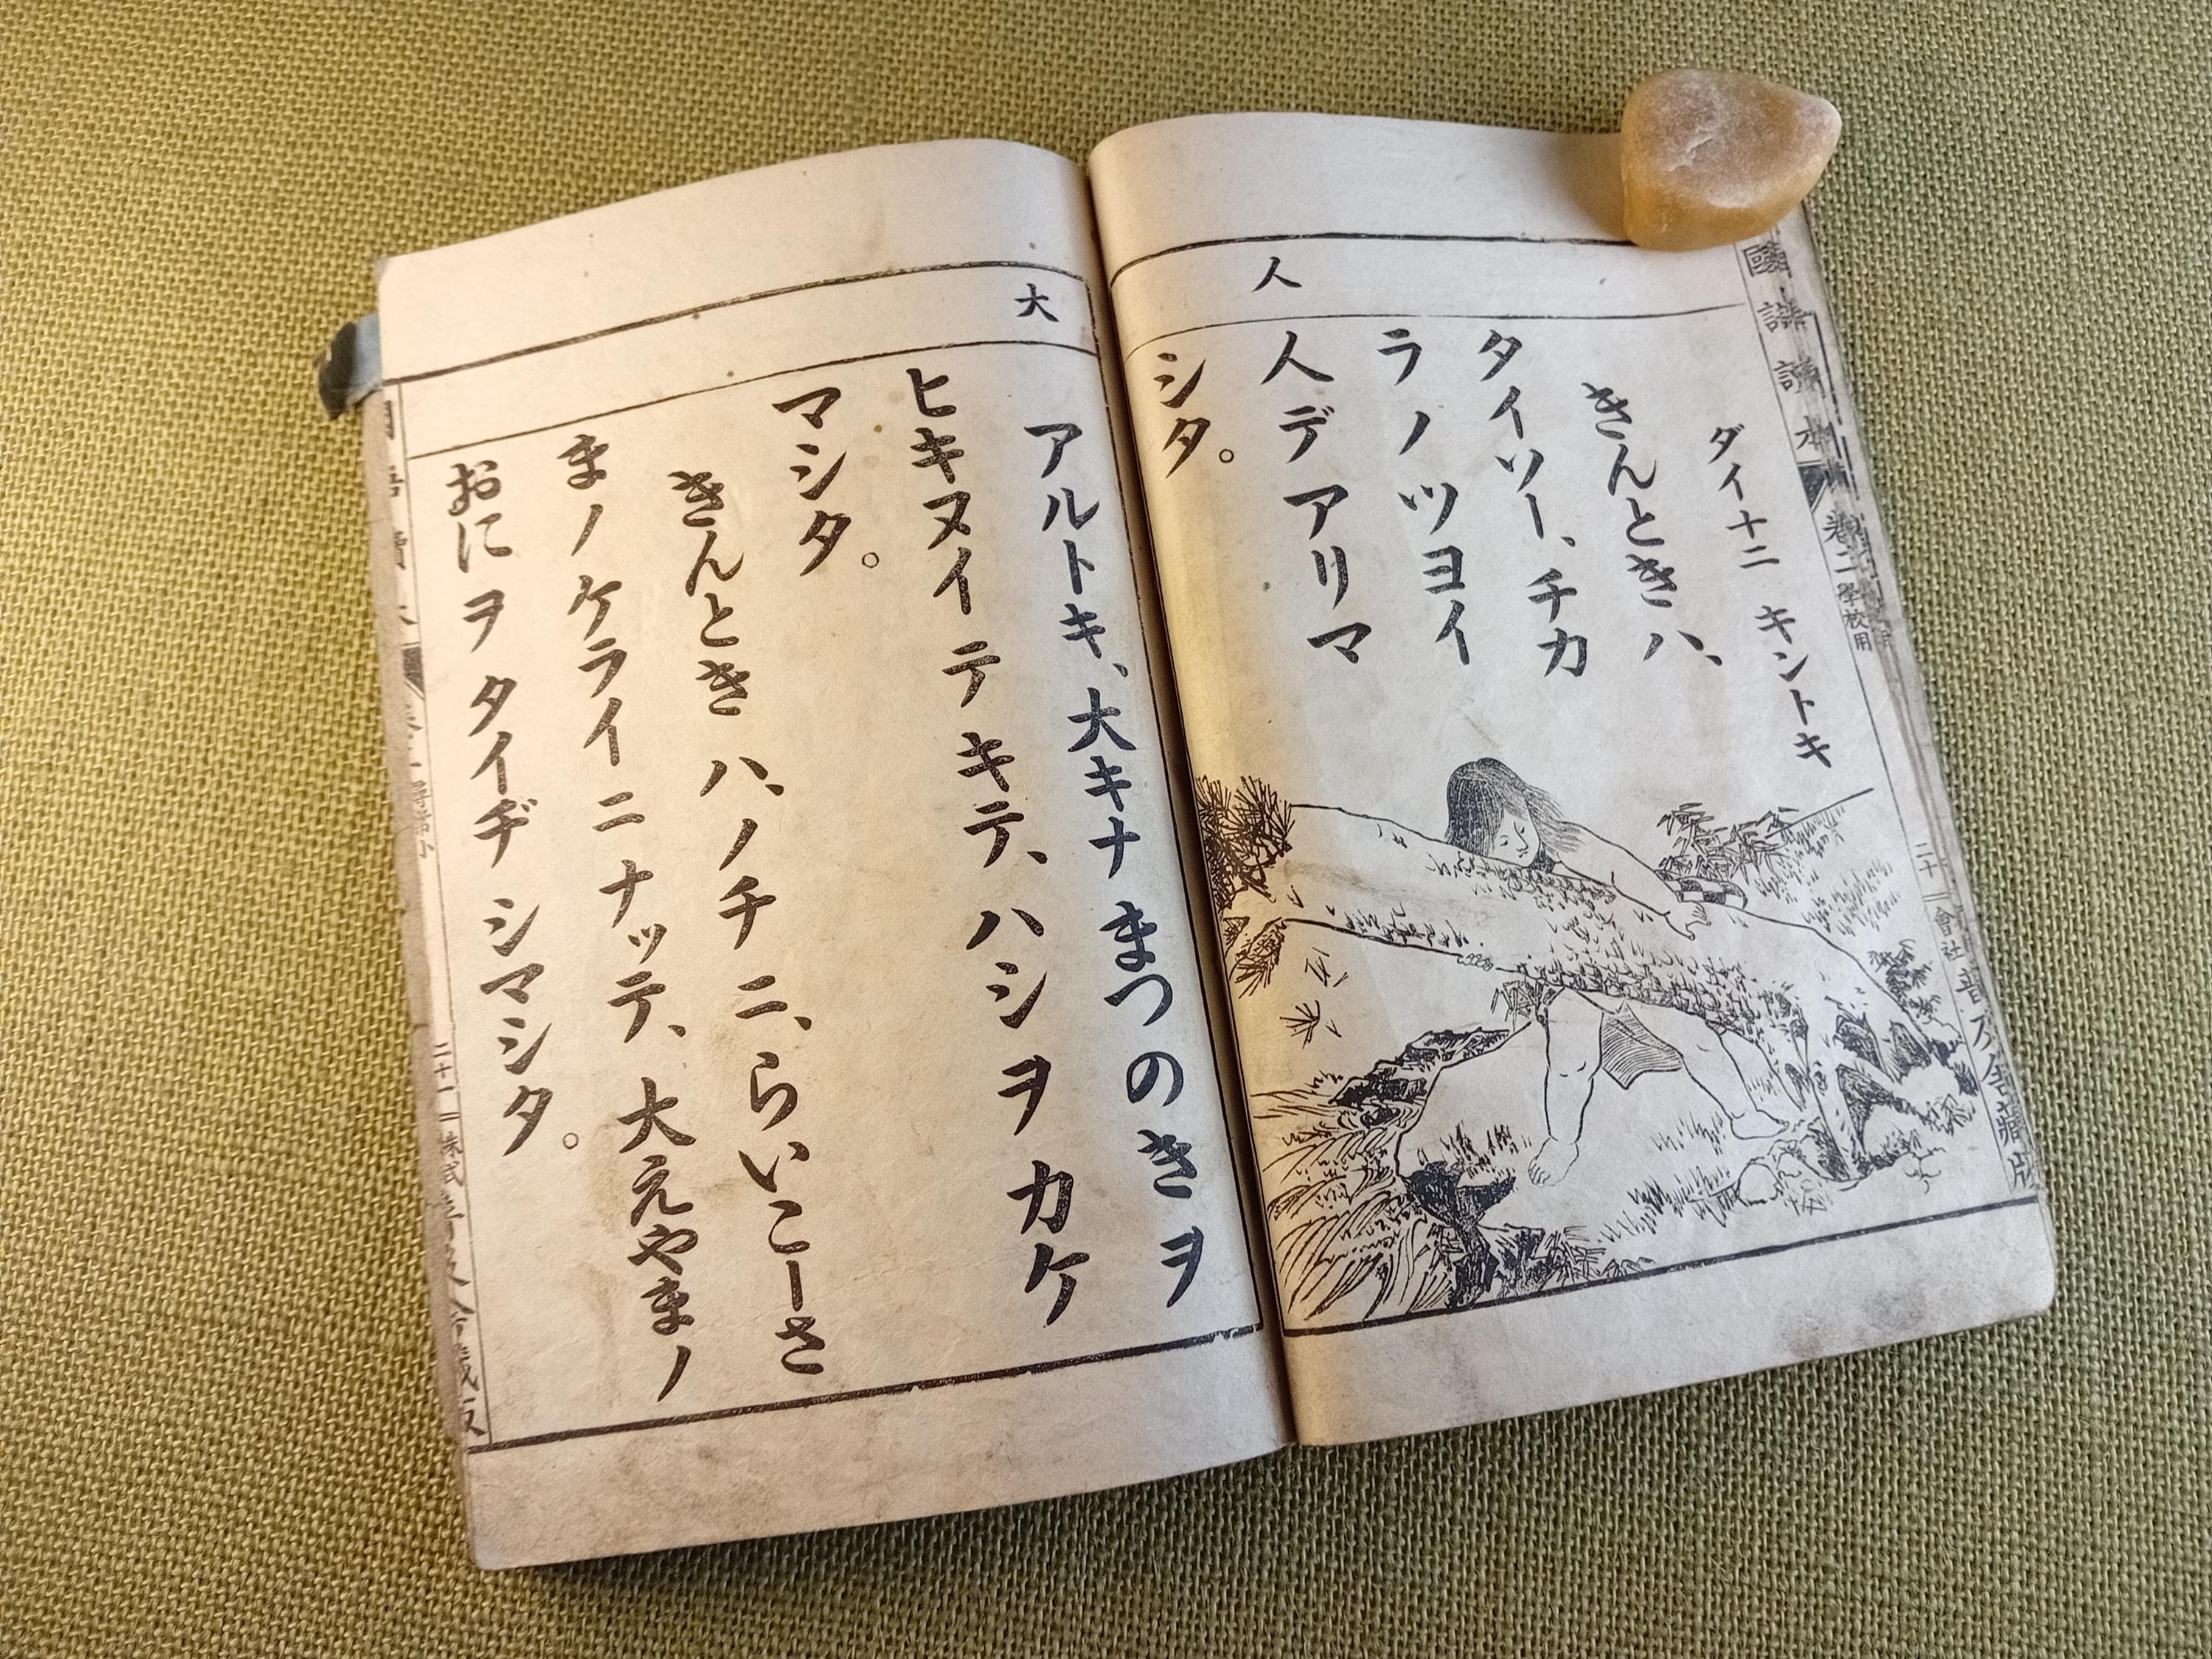 國語讀本
卷二
學校用
二十
會社普及舍藏版
人
ダイ十二 キントキ
きんときハ、
タイソー、チカ
ラノツヨイ
人デアリマ
シタ。
大
アルトキ、大キナまつのきヲ
ヒキヌイテキテ、ハシヲカケ
マシタ。
きんときハ、ノチニ、らいこーさ
まノケライニナッテ、大えやまノ
おにヲタイヂシマシタ。
二十一
株式